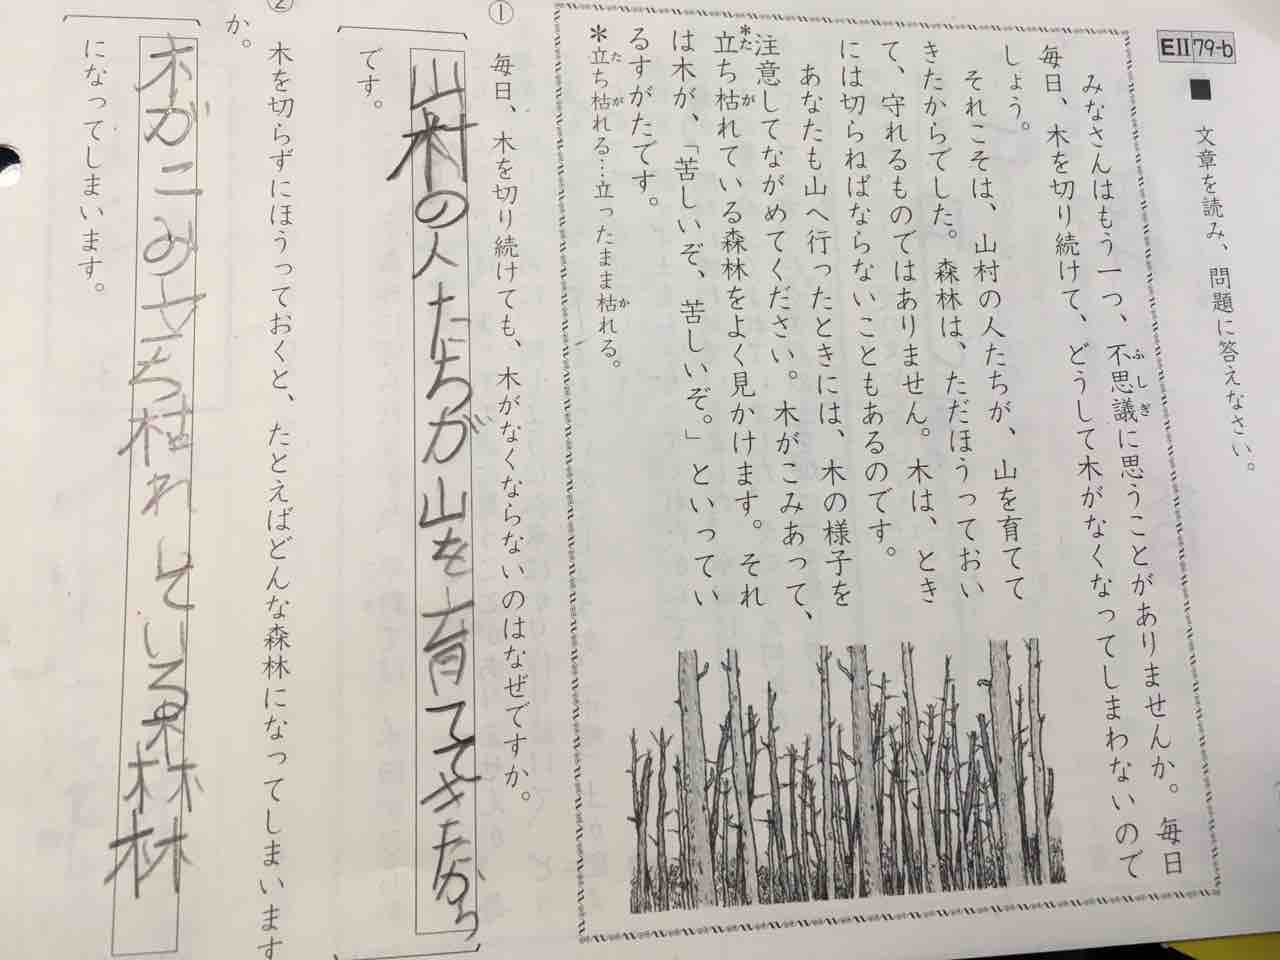 EII 79-b
■ 文章を読み、問題に答えなさい。
みなさんはもう一つ、不思議に思うことがありませんか。毎日
毎日、木を切り続けて、どうして木がなくなってしまわないので
しょう。
それこそは、山村の人たちが、山を育てて
きたからでした。森林は、ただほうっておい
て、守れるものではありません。木は、とき
には切らねばならないこともあるのです。
あなたも山へ行ったときには、木の様子を
注意してながめてください。木がこみあって、
*立ち枯れている森林をよく見かけます。それ
は木が、「苦しいぞ、苦しいぞ。」といってい
るすがたです。
*立ち枯れる…立ったまま枯れる。
① 毎日、木を切り続けても、木がなくならないのはなぜですか。
山村の人たちが山を育ててきたから
です。
② 木を切らずにほうっておくと、たとえばどんな森林になってしまいます
か。
木がこみ立ち枯れしている森林
になってしまいます。